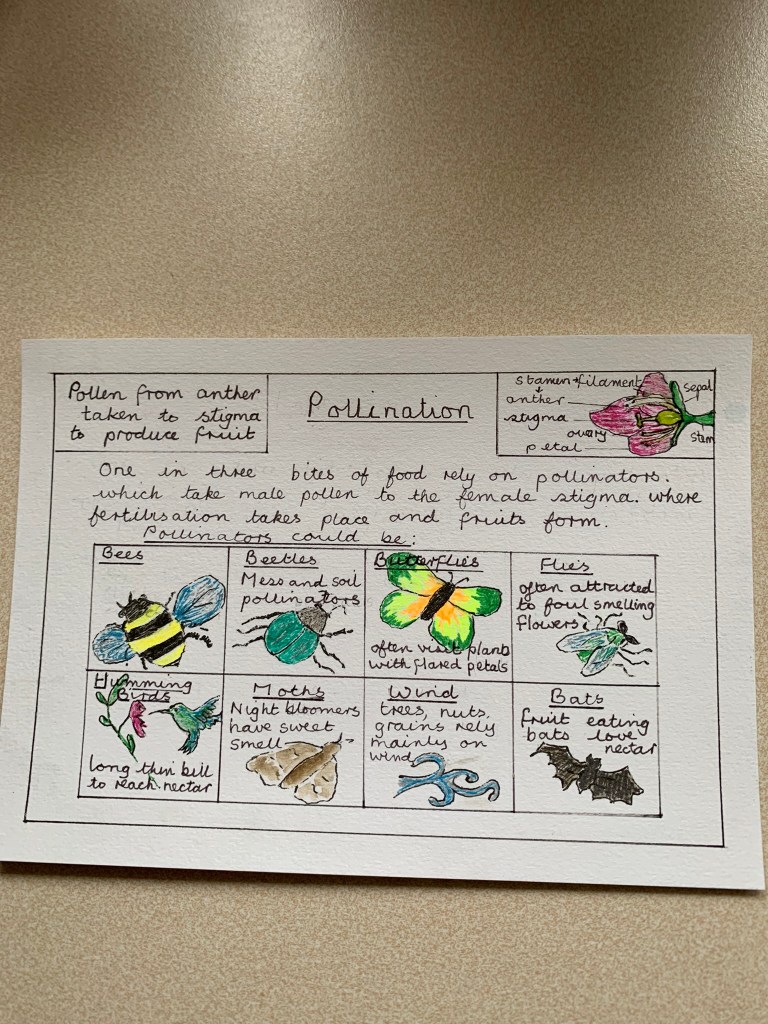 Pollen from anther
taken to stigma
to produce fruit
Pollination
stamen + filament
anther
stigma
ovary
petal
sepal
stem
One in three bites of food rely on pollinators.
which take male pollen to the female stigma. where
fertilisation takes place and fruits form.
Pollinators could be:
Bees
Beetles
Mess and soil
pollinators
Butterflies
often visit plants
with flared petals
Flies
often attracted
to foul smelling
flowers
Humming
Birds
long thin bill
to reach nectar
Moths
Night bloomers
have sweet
smell
Wind
trees, nuts,
grains rely
mainly on
wind
Bats
fruit eating
bats love
nectar